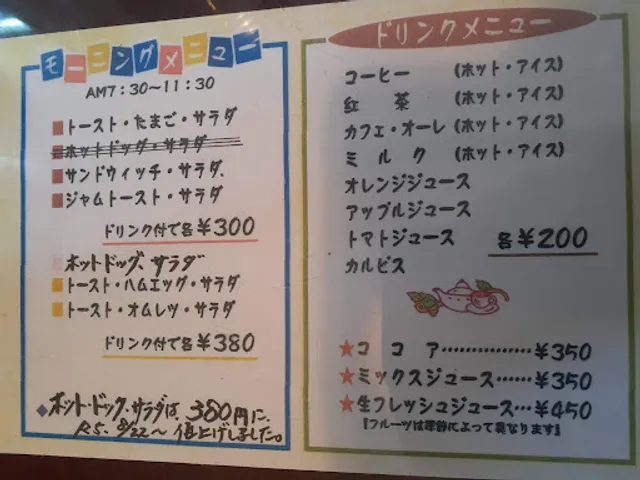 モーニングメニュー
AM7:30〜11:30
トースト・たまご・サラダ
ホットドッグ・サラダ
サンドウィッチ・サラダ、
ジャムトースト・サラダ
ドリンク付で各¥300
ホットドッグ、サラダ
トースト・ハムエッグ・サラダ
トースト・オムレツ・サラダ
ドリンク付で各¥380
◆ホットドック、サラダは、380円に、
R5. 8/22〜 値上げしました。
ドリンクメニュー
コーヒー (ホット・アイス)
紅茶 (ホット・アイス)
カフェ・オーレ (ホット・アイス)
ミルク (ホット・アイス)
オレンジジュース
アップルジュース
トマトジュース 各¥200
カルピス
★ココア……………¥350
★ミックスジュース……¥350
★生フレッシュジュース…¥450
『フルーツは季節によって異なります』